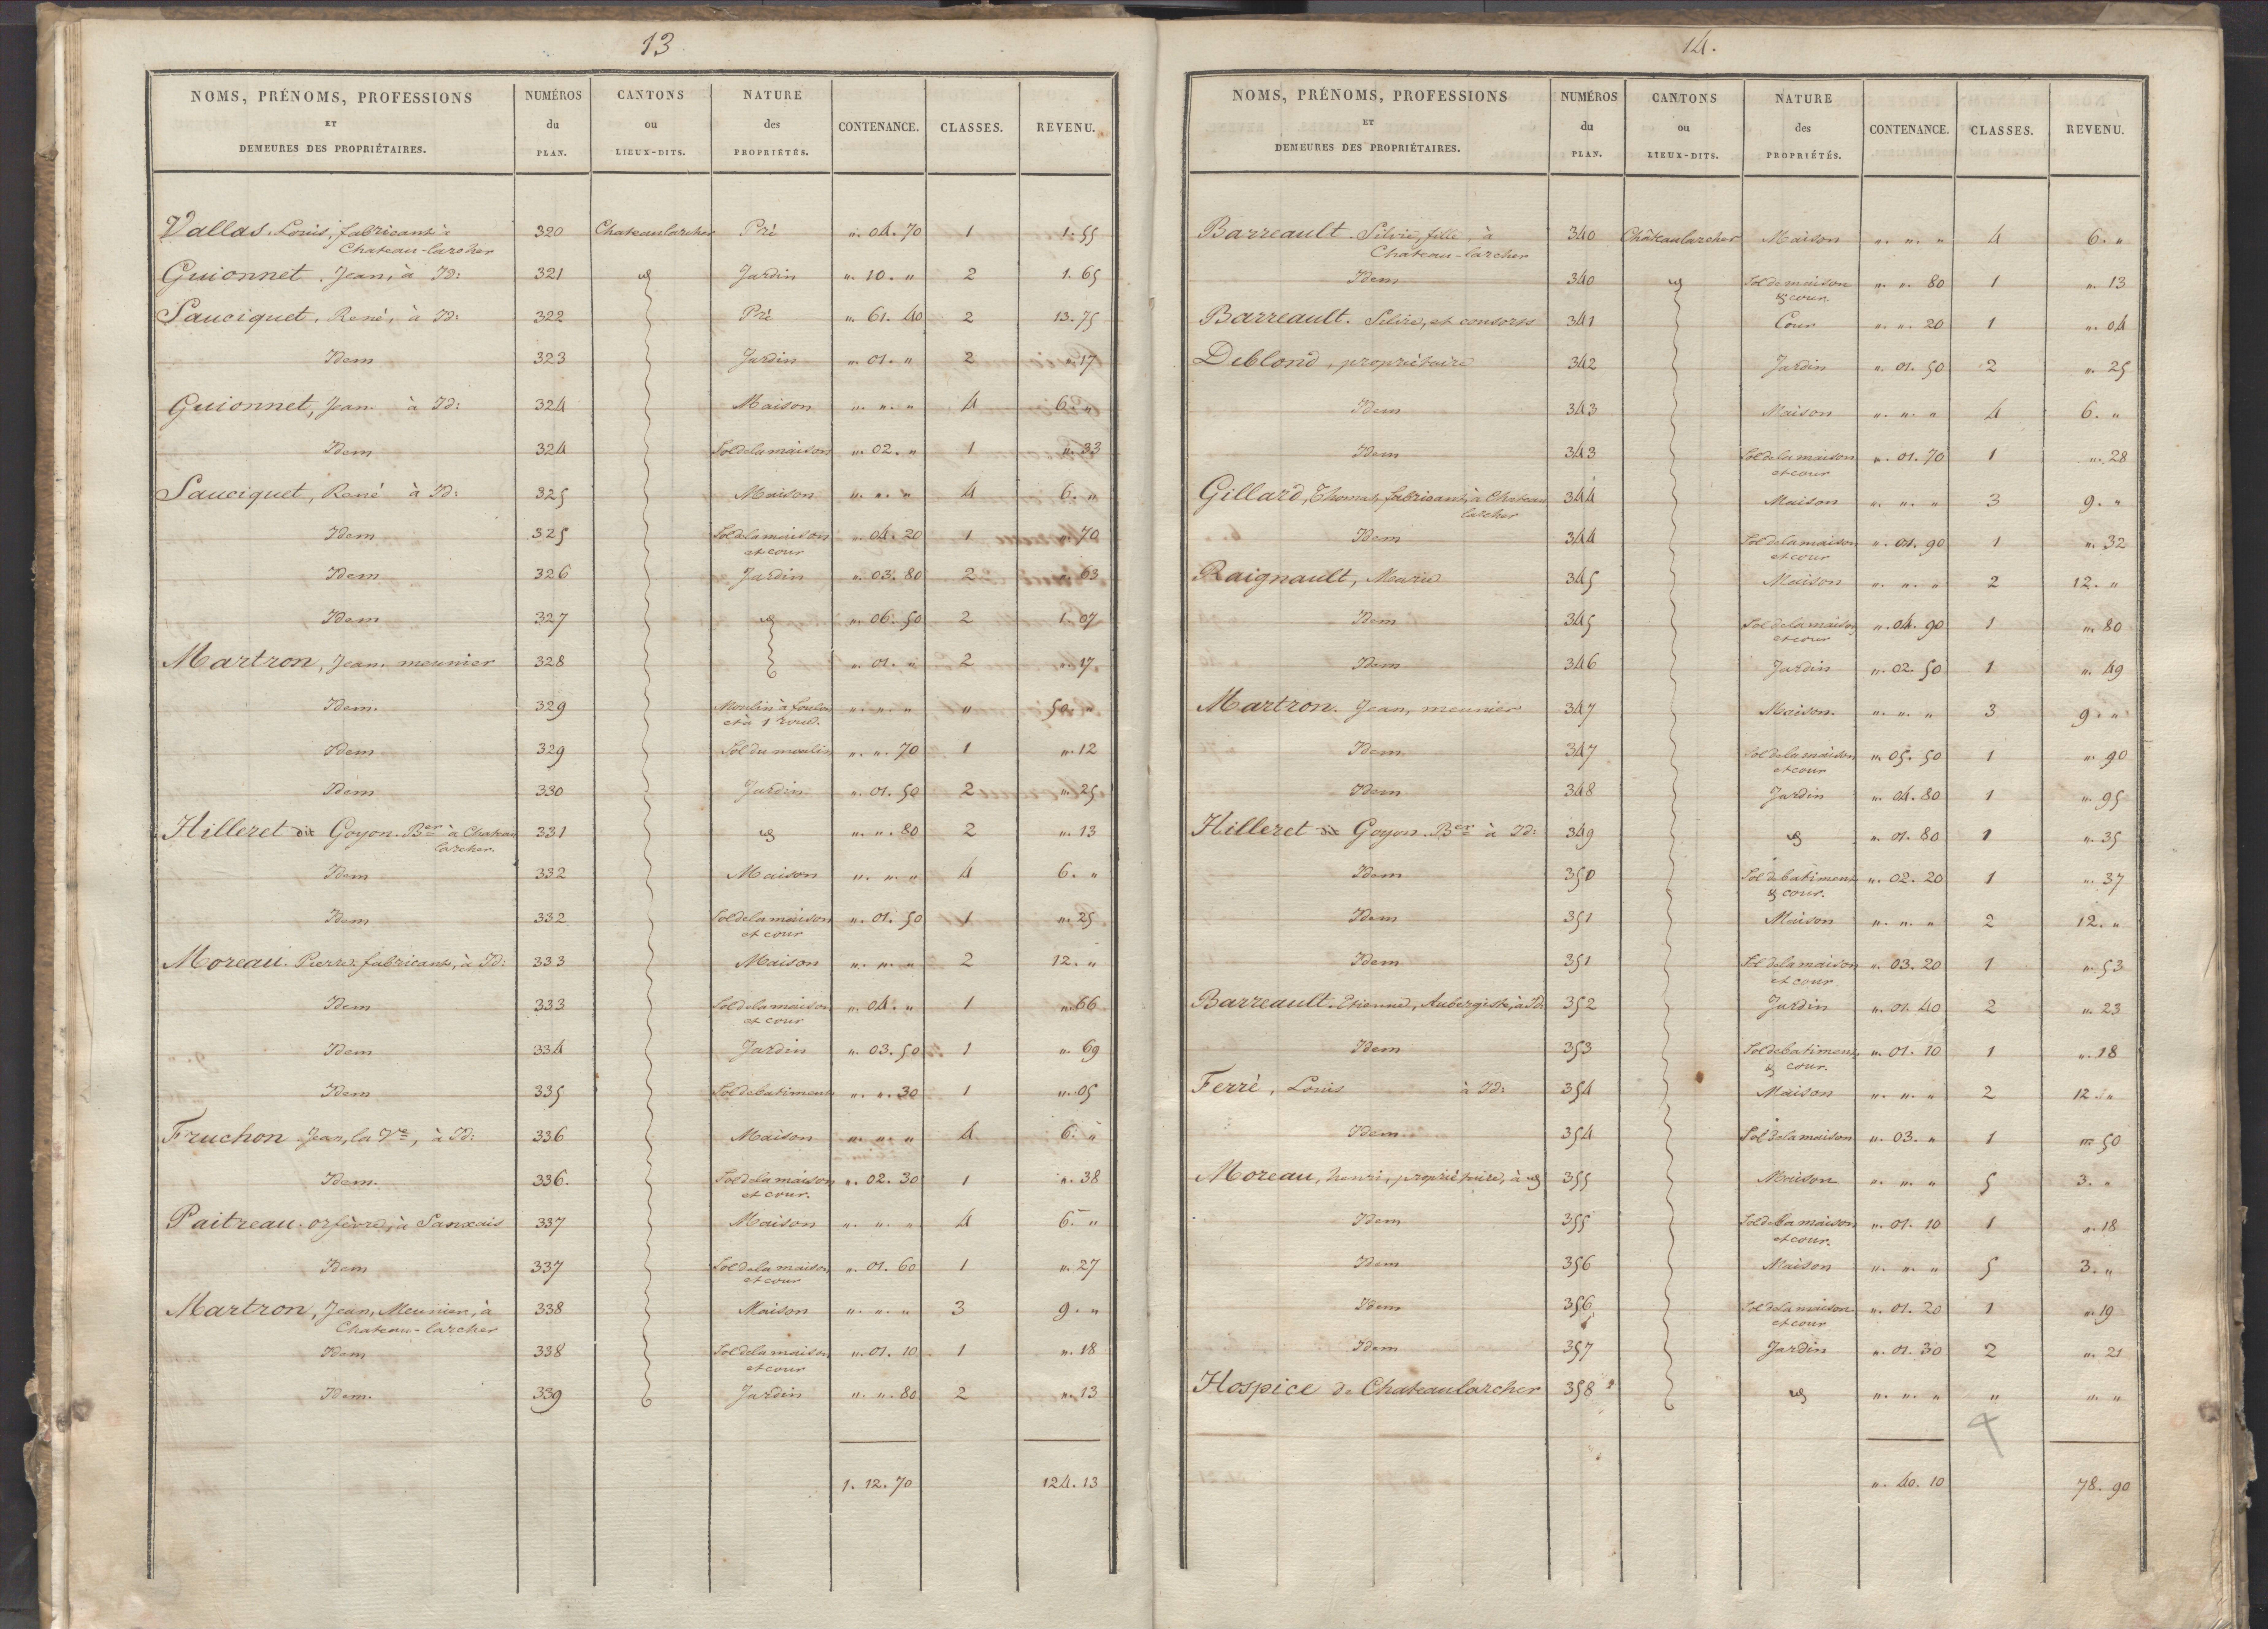 13
NOMS, PRÉNOMS, PROFESSIONS ET DEMEURES DES PROPRIÉTAIRES. NUMÉROS du PLAN. CANTONS ou LIEUX-DITS. NATURE des PROPRIÉTÉS. CONTENANCE. CLASSES. REVENU.
Vallas. Louis, fabricant à 320 Chateaularcher Pré ". 04. 70 1 1. 55
Chateau-larcher
Guionnet. Jean, à Id: 321 id Jardin ". 10. " 2 1. 65
Sauciquet, René, à Id: 322 Pré ". 61. 40 2 13. 75
Idem 323 Jardin ". 01. " 2 ". 17
Guionnet, Jean. à Id: 324 Maison ". ". " 4 6. "
Idem 324 Sol de la maison ". 02. " 1 ". 33
Sauciquet, René à Id: 325 Maison ". ". " 4 6. "
Idem 325 Sol de la maison ". 04. 20 1 ". 70
et cour
Idem 326 Jardin ". 03. 80 2 ". 63
Idem 327 id ". 06. 50 2 1. 07
Martron, Jean. meunier 328 ". 01. " 2 ". 17
Idem. 329 Moulin à foulon ". ". " " 50. "
et à 1 roue.
Idem 329 Sol du moulin ". ". 70 1 ". 12
Idem 330 Jardin ". 01. 50 2 ". 25
Hilleret dit Goyon. Ber à Chateau 331 id ". ". 80 2 ". 13
larcher.
Idem 332 Maison ". ". " 4 6. "
Idem 332 Sol de la maison ". 01. 50 1 ". 25
et cour
Moreau. Pierre fabricant, à Id: 333 Maison ". ". " 2 12. "
Idem 333 Sol de la maison ". 04. " 1 ". 66
et cour
Idem 334 Jardin ". 03. 50 1 ". 69
Idem 335 Sol de batiment ". ". 30 1 ". 05
Fruchon Jean, la Ve, à Id: 336 Maison ". ". " 4 6. "
Idem. 336. Sol de la maison ". 02. 30 1 ". 38
et cour.
Paitreau. orfèvre, à Sanxais 337 Maison ". ". " 4 6. "
Idem 337 Sol de la maison ". 01. 60 1 ". 27
et cour
Martron, Jean, Meunier, à 338 Maison ". ". " 3 9. "
Chateau-larcher
Idem 338 Sol de la maison ". 01. 10 1 ". 18
et cour
Idem. 339 Jardin ". ". 80 2 ". 13
1. 12. 70 124. 13
14.
NOMS, PRÉNOMS, PROFESSIONS ET DEMEURES DES PROPRIÉTAIRES. NUMÉROS du PLAN. CANTONS ou LIEUX-DITS. NATURE des PROPRIÉTÉS. CONTENANCE. CLASSES. REVENU.
Barreault. Silvie, fille, à 340 Châteaularcher Maison ". ". " 4 6. "
Chateau-larcher
Idem 340 id Sol de maison ". ". 80 1 ". 13
& cour.
Barreault. Silvie, et consorts 341 Cour ". ". 20 1 ". 04
Deblond, propriétaire 342 Jardin ". 01. 50 2 ". 25
Idem 343 Maison ". ". " 4 6. "
Idem 343 Sol de la maison ". 01. 70 1 ". 28
et cour
Gillard, Thomas, fabricant, à Chateau 344 Maison ". ". " 3 9. "
larcher
Idem 344 Sol de la maison ". 01. 90 1 ". 32
et cour
Raignault, Marie 345 Maison ". ". " 2 12. "
Idem 345 Sol de la maison ". 04. 90 1 ". 80
et cour
Idem 346 Jardin ". 02. 50 1 ". 49
Martron. Jean, meunier 347 Maison. ". ". " 3 9. "
Idem 347 Sol de la maison ". 05. 50 1 ". 90
et cour
Idem 348 Jardin ". 04. 80 1 ". 95
Hilleret dit Goyon. Ber à Id: 349 id ". 01. 80 1 ". 35
Idem 350 Sol de batiment ". 02. 20 1 ". 37
& cour.
Idem 351 Maison ". ". " 2 12. "
Idem 351 Sol de la maison ". 03. 20 1 ". 53
et cour
Barreault. Etienne, Aubergiste, à Id: 352 Jardin ". 01. 40 2 ". 23
Idem 353 Sol de batiment ". 01. 10 1 ". 18
& cour.
Ferré, Louis à Id: 354 Maison ". ". " 2 12. "
Idem 354 Sol de la maison ". 03. " 1 ". 50
Moreau, henri, propriétaire, à id 355 Maison ". ". " 5 3. "
Idem 355 Sol de la maison ". 01. 10 1 ". 18
et cour.
Idem 356 Maison ". ". " 5 3. "
Idem 356 Sol de la maison ". 01. 20 1 ". 19
et cour
Idem 357 Jardin ". 01. 30 2 ". 21
Hospice de Chateaularcher 358 id ". ". " " ". "
". 40. 10 78. 90